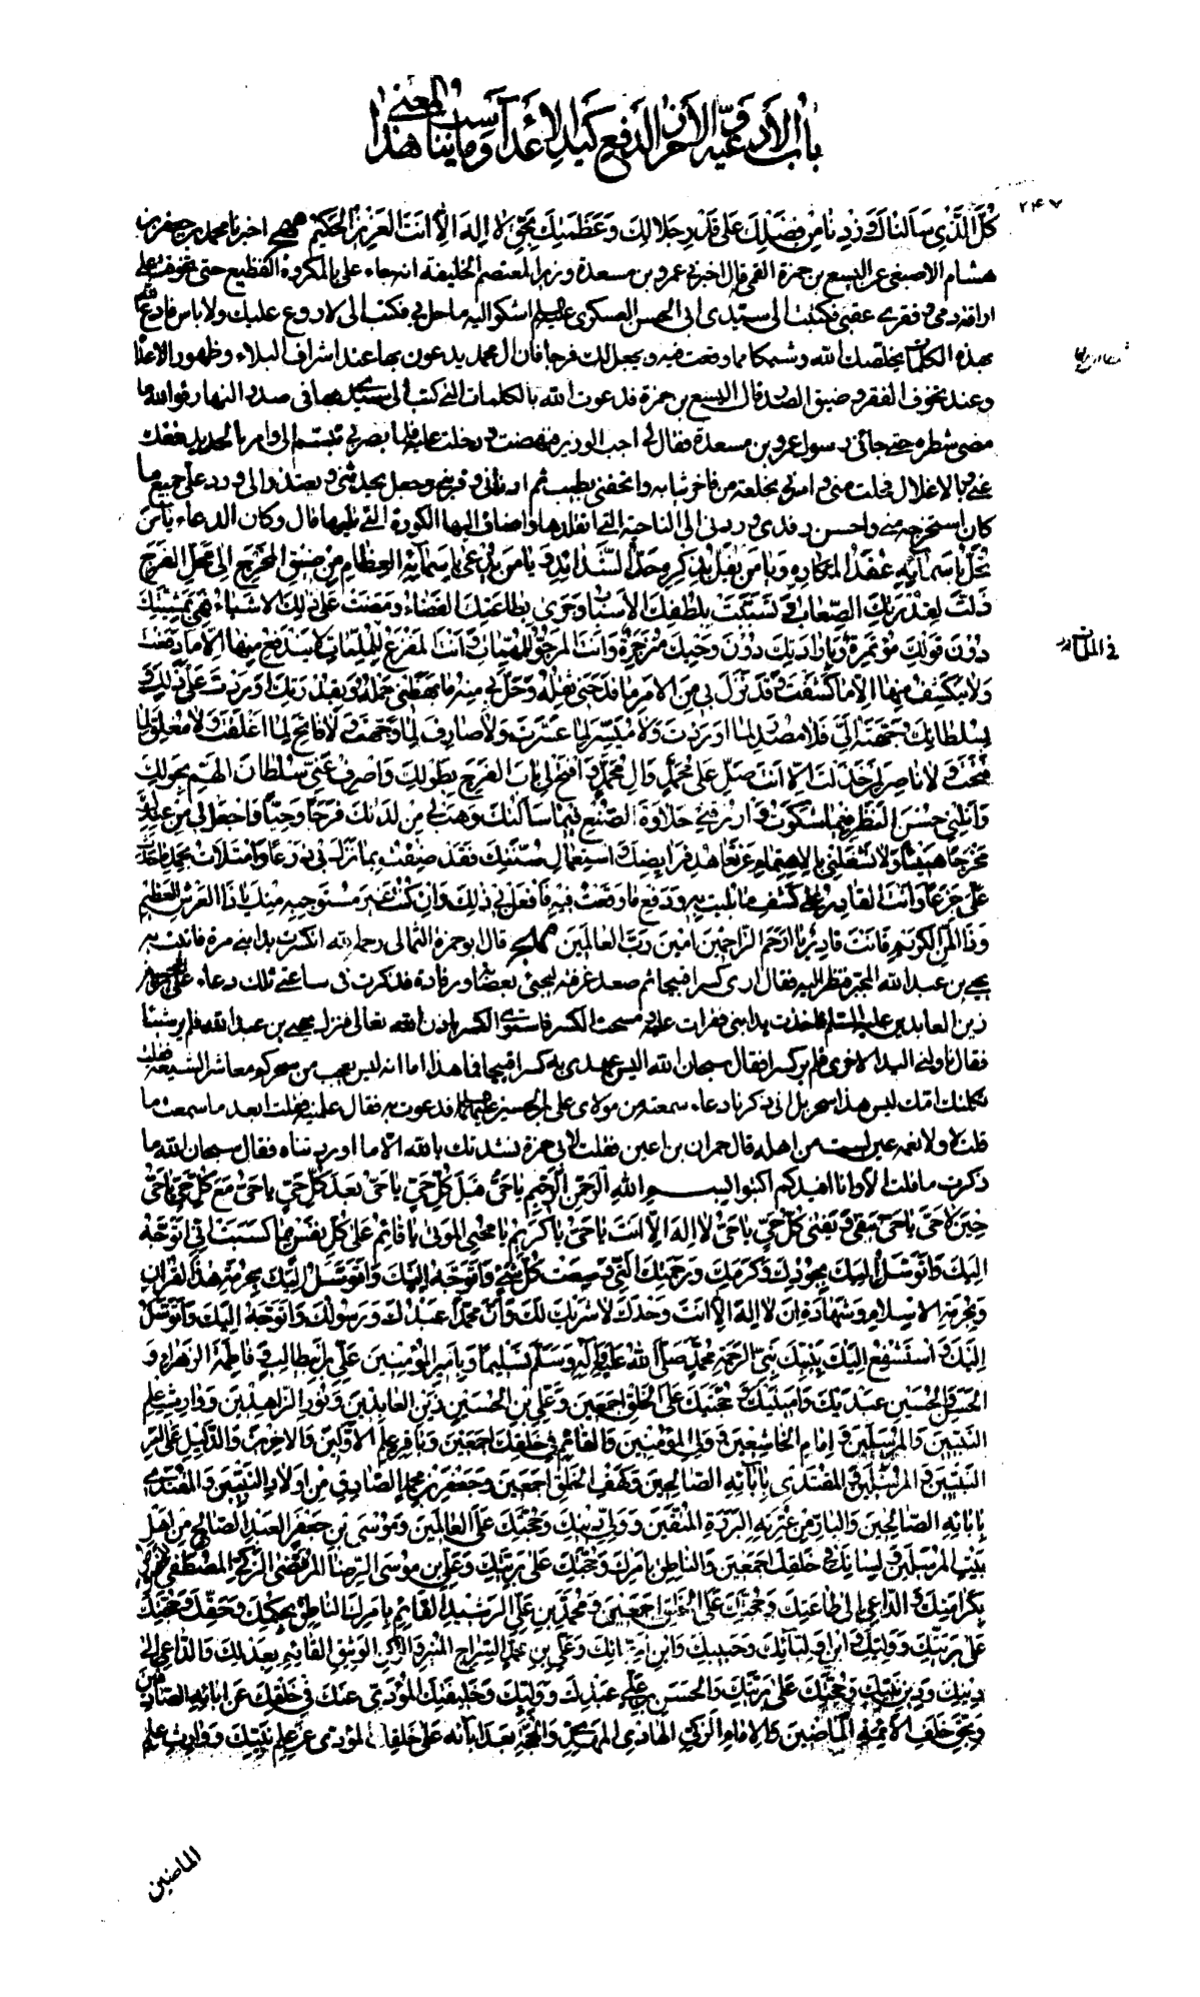 باب الأدعية والأحراز لدفع كيد الأعداء وما يناسب هذا المعنى
٢٤٧
كُلَّ الَّذي سَأَلناكَ وَزِدْنا مِنْ فَضْلِكَ عَلى قَدْرِ جَلالِكَ وَعَظَمَتِكَ بِحَقِّ لا إِلهَ إِلاّ أَنْتَ العَزيزُ الحَكيمُ مهج اخبرنا محمد بن جعفر بن
هشام الاصبغي عن اليسع بن حمزة القمي قال اخبرني عمرو بن مسعدة وزير المعتصم الخليفة انه جاء علي بالمكروه الفظيع حتى تخوفت على
اراقة دمي وفقر عقبي فكتبت الى سيدي ابي الحسن العسكري عليه السلم اشكو اليه ما حل بي فكتب الي لا روع عليك ولا باس فادع الله
بهذه الكلمات يخلصك الله وشيكا مما وقعت فيه ويجعل لك فرجا فان آل محمد يدعون بها عند اشراف البلاء وظهور الاعداء
وعند تخوف الفقر وضيق الصدر قال اليسع بن حمزة فدعوت الله بالكلمات التي كتب الي سيدي بها في صدر النهار فوالله ما
مضى شطره حتى جائني رسول عمرو بن مسعدة فقال لي اجب الوزير فنهضت ودخلت عليه فلما بصر بي تبسم الي وامر بالحديد ففك
عني وبالاغلال فحلت مني وامر لي بخلعة من فاخر ثيابه واتحفني بطيب ثم ادناني وقربني وجعل يحدثني ويعتذر الي ورد علي جميع ما
كان استخرجه مني واحسن رفدي وردني الى الناحية التي اتقلدها واضاف اليها الكورة التي تليها قال وكان الدعاء يا مَنْ
تُحَلُّ بِأَسْمائِهِ عُقَدُ المَكارِهِ وَيا مَنْ يُفَلُّ بِذِكْرِهِ حَدُّ الشَّدائِدِ وَيا مَنْ يُدْعى بِأَسْمائِهِ العِظامِ مِنْ ضيقِ المَخْرَجِ إِلى مَحَلِّ الفَرَجِ
ذَلَّتْ لِقُدْرَتِكَ الصِّعابُ وَتَسَبَّبَتْ بِلُطْفِكَ الأَسْبابُ وَجَرى بِطاعَتِكَ القَضاءُ وَمَضَتْ عَلى ذلِكَ الأَشْياءُ فَهِيَ بِمَشِيَّتِكَ
دُونَ قَوْلِكَ مُؤْتَمِرَةٌ وَبِإِرادَتِكَ دُونَ وَحْيِكَ مُنْزَجِرَةٌ وَأَنْتَ المَرْجُوُّ لِلْمُهِمّاتِ وَأَنْتَ المَفْزَعُ لِلْمُلِمّاتِ لا يَنْدَفِعُ مِنْها إِلاّ ما دَفَعْتَ
وَلا يَنْكَشِفُ مِنْها إِلاّ ما كَشَفْتَ وَقَدْ نَزَلَ بي مِنَ الأَمْرِ ما فَدَحَني ثِقْلُهُ وَحَلَّ بي مِنْهُ ما بَهَظَني حَمْلُهُ وَبِقُدْرَتِكَ أَوْرَدْتَ عَلَيَّ ذلِكَ وَ
بِسُلْطانِكَ وَجَّهْتَهُ إِلَيَّ فَلا مُصْدِرَ لِما أَوْرَدْتَ وَلا مُيَسِّرَ لِما عَسَّرْتَ وَلا صارِفَ لِما وَجَّهْتَ وَلا فاتِحَ لِما أَغْلَقْتَ وَلا مُغْلِقَ لِما
فَتَحْتَ وَلا ناصِرَ لِمَنْ خَذَلْتَ إِلاّ أَنْتَ صَلِّ عَلى مُحَمَّدٍ وَآلِ مُحَمَّدٍ وَافْتَحْ لي بابَ الفَرَجِ بِطَوْلِكَ وَاصْرِفْ عَنّي سُلْطانَ الهَمِّ بِحَوْلِكَ
وَأَنِلْني حُسْنَ النَّظَرِ فيما شَكَوْتُ وَارْزُقْني حَلاوَةَ الصُّنْعِ فيما سَأَلْتُكَ وَهَبْ لي مِنْ لَدُنْكَ فَرَجاً وَحِيّاً وَاجْعَلْ لي مِنْ عِنْدِكَ
مَخْرَجاً هَنيئاً وَلا تَشْغَلْني بِالاِهْتِمامِ عَنْ تَعاهُدِ فَرائِضِكَ وَاسْتِعْمالِ سُنَّتِكَ فَقَدْ ضِقْتُ بِما نَزَلَ بي ذَرْعاً وَامْتَلأتُ بِحَمْلِ ما حَدَثَ
عَلَيَّ جَزَعاً وَأَنْتَ القادِرُ عَلى كَشْفِ ما بُليتُ بِهِ وَدَفْعِ ما وَقَعْتُ فيهِ فَافْعَلْ بي ذلِكَ وَإِنْ كُنْتُ غَيْرَ مُسْتَوْجِبِهِ مِنْكَ يا ذَا العَرْشِ العَظيمِ
وَذَا المَنِّ الكَريمِ فَأَنْتَ قادِرٌ يا أَرْحَمَ الرّاحِمينَ آمينَ رَبَّ العالَمينَ مهج قال ابو حمزة الثمالي رحمه الله انكسرت يد ابني مرة فاتيت به
يحيى بن عبد الله المجبر فنظر اليه فقال ارى كسرا قبيحا ثم صعد غرفته ليجئ بعصابة ورفادة فذكرت في ساعتي تلك دعاء علي بن الحسين
زين العابدين عليه السلم فاخذت يد ابني فقرات عليه ومسحت الكسر فاستوى الكسر باذن الله تعالى فنزل يحيى بن عبد الله فلم ير شيئا
فقال ناولني اليد الاخرى فلم ير كسرا فقال سبحان الله اليس عهدي به كسرا قبيحا فما هذا اما انه ليس بعجب من سحركم معاشر الشيعة فقلت
ثكلتك امك ليس هذا سحر بل اني ذكرت دعاء سمعته من مولاي علي بن الحسين عليهما السلم فدعوت به فقال علمنيه فقلت ابعد ما سمعت ما
قلت لا ولا نعمة عين لست من اهله قال حمران بن اعين فقلت لابي حمزة نشدتك بالله الا ما اوردتناه فقال سبحان الله ما
ذكرت ما قلت الا وانا افيدكم اكتبوا بسم اللهِ الرَّحْمنِ الرَّحيمِ يا حَيُّ قَبْلَ كُلِّ حَيٍّ يا حَيُّ بَعْدَ كُلِّ حَيٍّ يا حَيُّ مَعَ كُلِّ حَيٍّ يا حَيُّ
حينَ لا حَيَّ يا حَيُّ يَبْقى وَيَفْنى كُلُّ حَيٍّ يا حَيُّ لا إِلهَ إِلاّ أَنْتَ يا حَيُّ يا كَريمُ يا مُحْيِيَ المَوْتى يا قائِمُ عَلى كُلِّ نَفْسٍ بِما كَسَبَتْ إِنّي أَتَوَجَّهُ
إِلَيْكَ وَأَتَوَسَّلُ إِلَيْكَ بِجُودِكَ وَكَرَمِكَ وَرَحْمَتِكَ الَّتي وَسِعَتْ كُلَّ شَيْءٍ وَأَتَوَجَّهُ إِلَيْكَ وَأَتَوَسَّلُ إِلَيْكَ بِحُرْمَةِ هذَا القُرآنِ
وَبِحُرْمَةِ الإِسْلامِ وَشَهادَةِ أَنْ لا إِلهَ إِلاّ أَنْتَ وَحْدَكَ لا شَريكَ لَكَ وَأَنَّ مُحَمَّداً عَبْدُكَ وَرَسُولُكَ وَأَتَوَجَّهُ إِلَيْكَ وَأَتَوَسَّلُ
إِلَيْكَ وَأَسْتَشْفِعُ إِلَيْكَ بِنَبِيِّكَ نَبِيِّ الرَّحْمَةِ مُحَمَّدٍ صَلَّى اللهُ عَلَيْهِ وَآلِهِ وَسَلَّمَ تَسْليماً وَبِأَميرِ المُؤْمِنينَ عَلِيِّ بْنِ أَبي طالِبٍ وَفاطِمَةَ الزَّهْراءِ وَ
الحَسَنِ وَالحُسَيْنِ عَبْدَيْكَ وَأَمينَيْكَ وَحُجَّتَيْكَ عَلَى الخَلْقِ أَجْمَعينَ وَعَلِيِّ بْنِ الحُسَيْنِ زَيْنِ العابِدينَ وَنُورِ الزّاهِدينَ وَوارِثِ عِلْمِ
النَّبِيّينَ وَالمُرْسَلينَ وَإِمامِ الخاشِعينَ وَوَلِيِّ المُؤْمِنينَ وَالقائِمِ في خَلْقِكَ أَجْمَعينَ وَباقِرِ عِلْمِ الأَوَّلينَ وَالآخِرينَ وَالدَّليلِ عَلى أَمْرِ
النَّبِيّينَ وَالمُرْسَلينَ وَالمُقْتَدي بِآبائِهِ الصّالِحينَ وَكَهْفِ الخَلْقِ أَجْمَعينَ وَجَعْفَرِ بْنِ مُحَمَّدٍ الصّادِقِ مِنْ أَوْلادِ النَّبِيّينَ وَالمُقْتَدي
بِآبائِهِ الصّالِحينَ وَالبارِّ مِنْ عِتْرَتِهِ البَرَرَةِ المُتَّقينَ وَوَلِيِّ دينِكَ وَحُجَّتِكَ عَلَى العالَمينَ وَمُوسَى بْنِ جَعْفَرٍ العَبْدِ الصّالِحِ مِنْ أَهْلِ
بَيْتِ المُرْسَلينَ وَلِسانِكَ في خَلْقِكَ أَجْمَعينَ وَالنّاطِقِ بِأَمْرِكَ وَحُجَّتِكَ عَلى بَرِيَّتِكَ وَعَلِيِّ بْنِ مُوسَى الرِّضا المُرْتَضى الزَّكِيِّ المُصْطَفى المخصوص
بِكَرامَتِكَ وَالدّاعي إِلى طاعَتِكَ وَحُجَّتِكَ عَلَى الخَلْقِ أَجْمَعينَ وَمُحَمَّدِ بْنِ عَلِيٍّ الرَّشيدِ القائِمِ بِأَمْرِكَ النّاطِقِ بِحُكْمِكَ وَحَقِّكَ وَحُجَّتِكَ
عَلى بَرِيَّتِكَ وَوَلِيِّكَ وَابْنِ أَوْلِيائِكَ وَحَبيبِكَ وَابْنِ أَحِبّائِكَ وَعَلِيِّ بْنِ مُحَمَّدٍ السِّراجِ المُنيرِ وَالرُّكْنِ الوَثيقِ القائِمِ بِعَدْلِكَ وَالدّاعي إِلى
دينِكَ وَدينِ نَبِيِّكَ وَحُجَّتِكَ عَلى بَرِيَّتِكَ وَالحَسَنِ بْنِ عَلِيٍّ عَبْدِكَ وَوَلِيِّكَ وَخَليفَتِكَ المُؤَدّي عَنْكَ في خَلْقِكَ عَنْ آبائِهِ الصّادِقينَ
وَبِحَقِّ خَلَفِ الأَئِمَّةِ الماضينَ وَالإِمامِ الزَّكِيِّ الهادِي المَهْدِيِّ وَالحُجَّةِ بَعْدَ آبائِهِ عَلى خَلْقِكَ المُؤَدّي عَنْ عِلْمِ نَبِيِّكَ وَوارِثِ عِلْمِ
الماضين